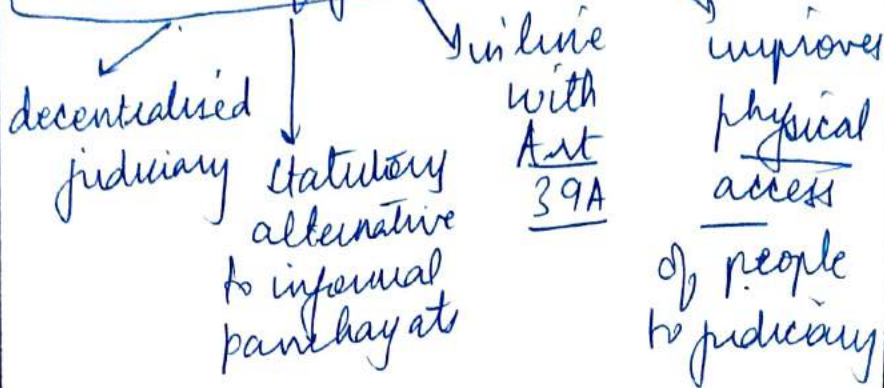 decentralised
judiciary
statutory
alternative
to informal
panchayats
in line
with
Art
39A
improves
physical
access
of people
to judiciary